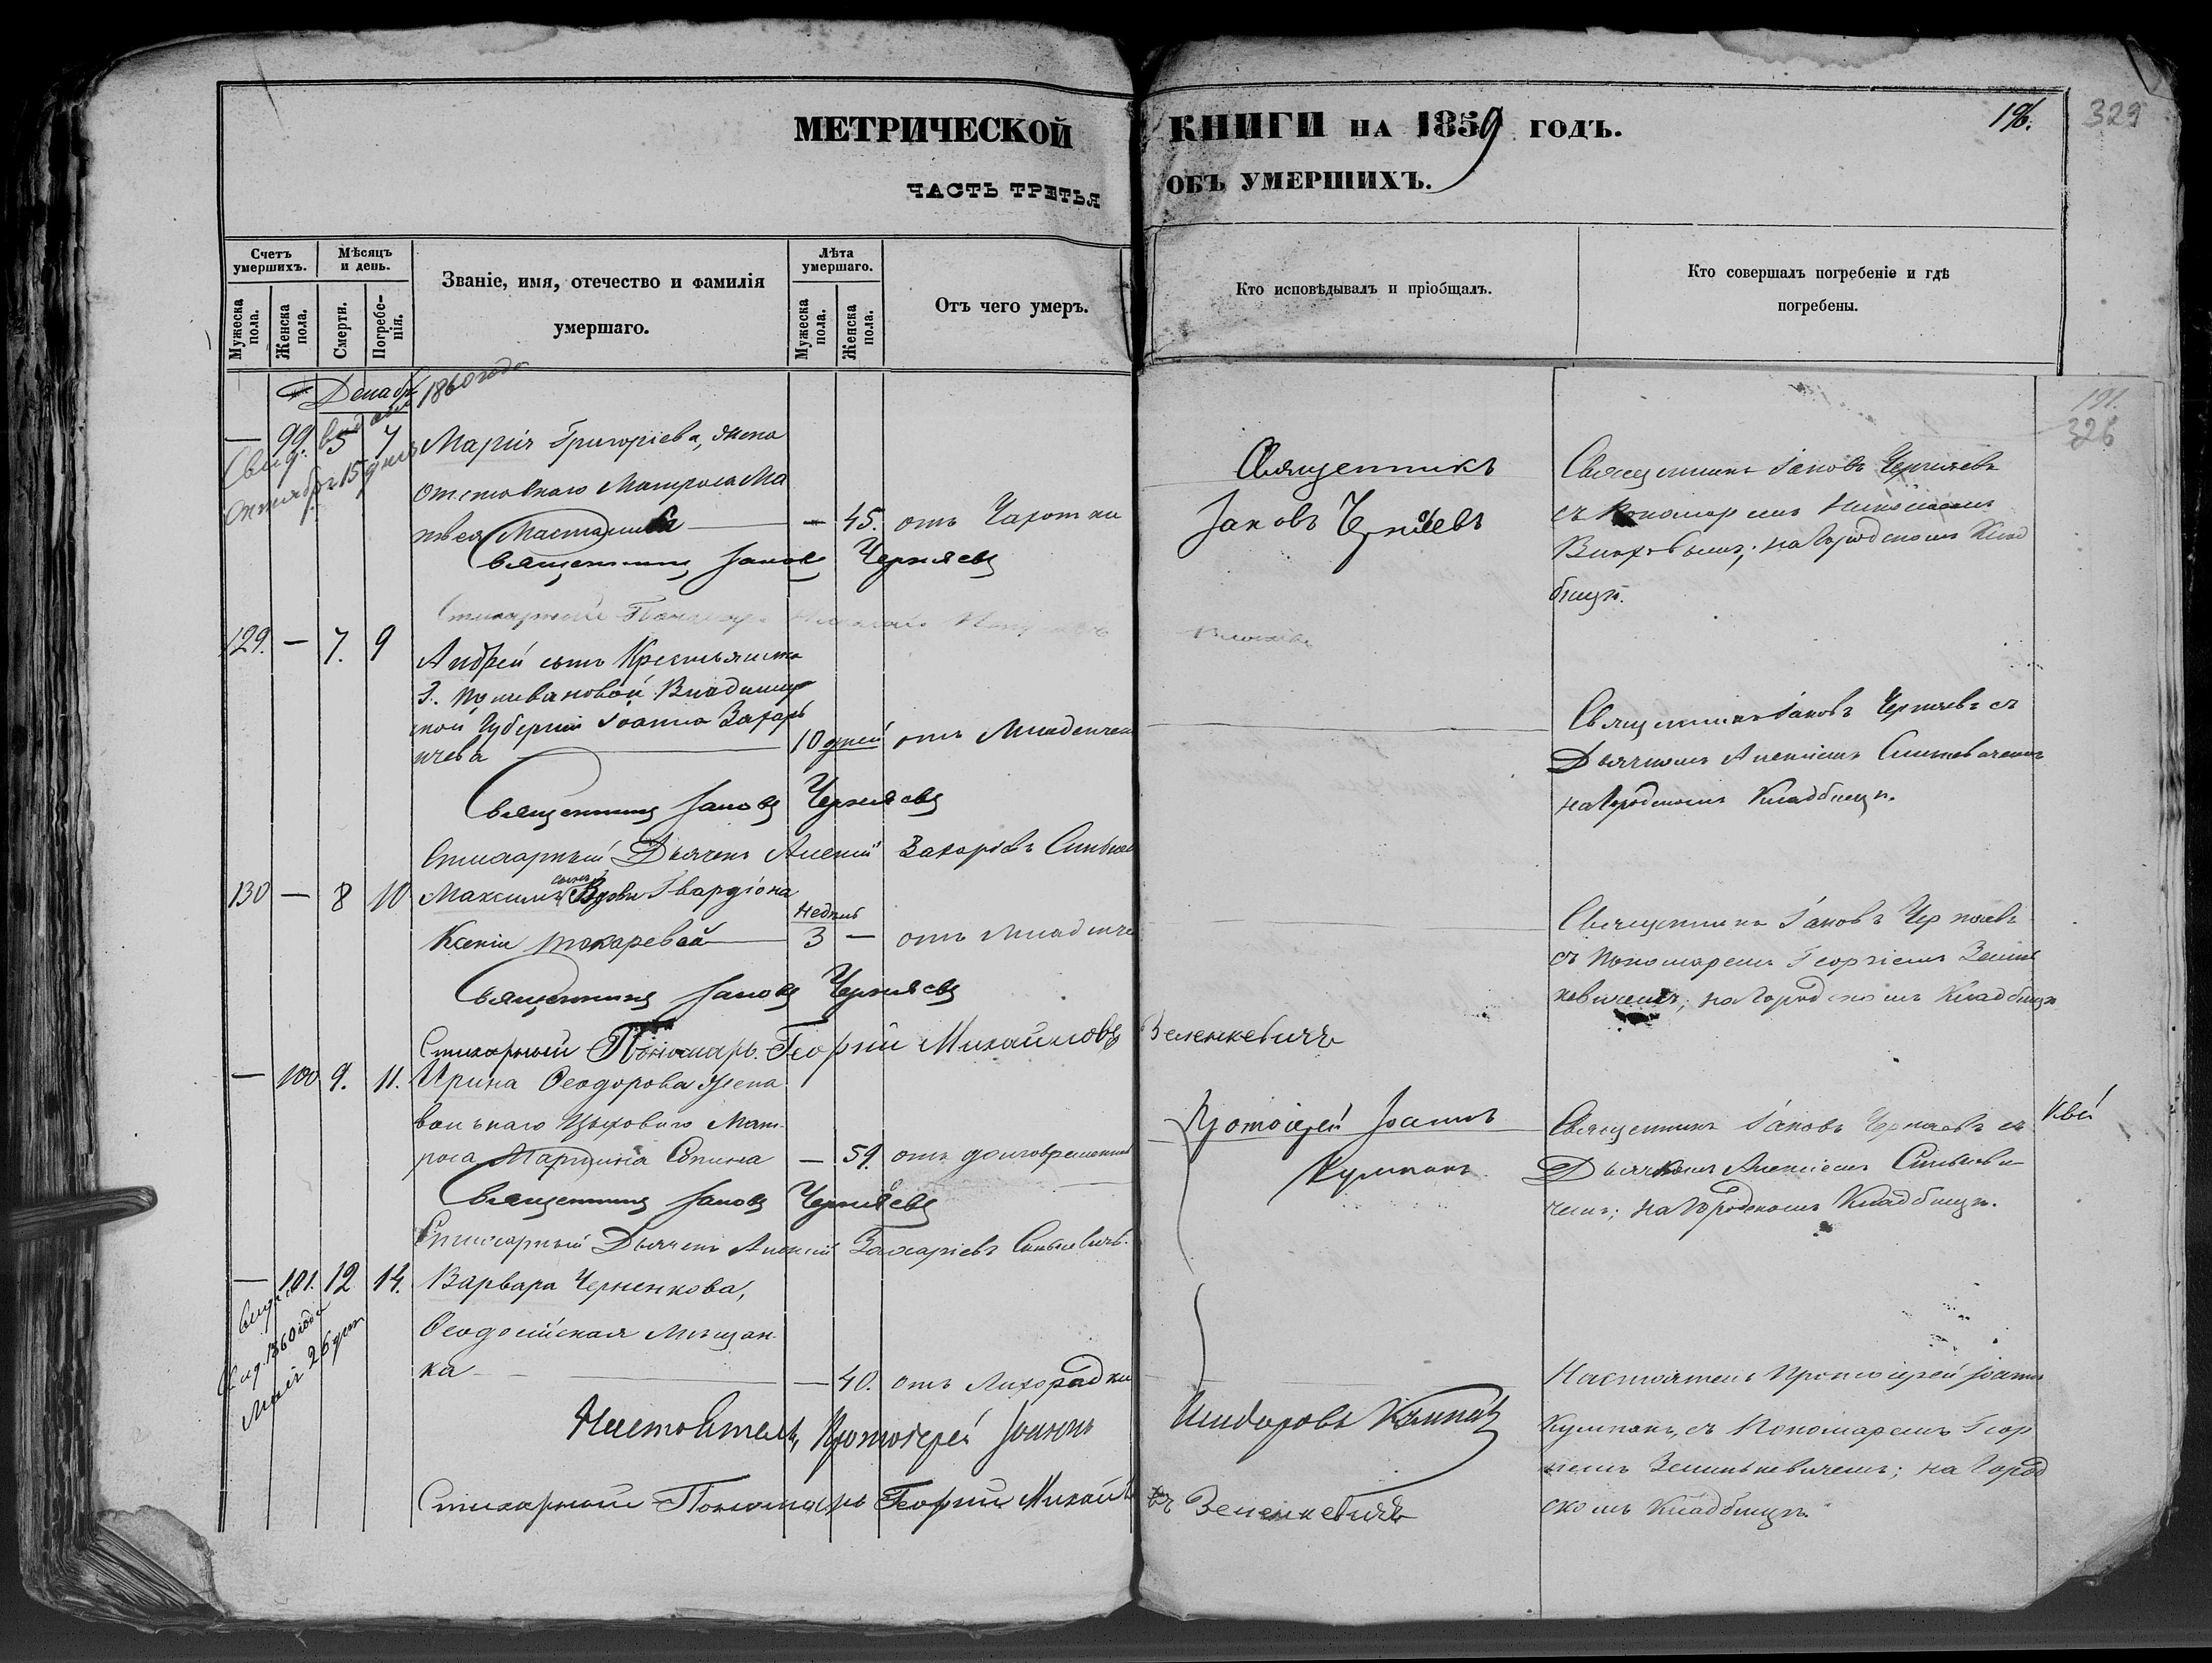 МЕТРИЧЕСКОЙ КНИГИ НА 1859 ГОДЪ.
196.
329
ЧАСТЬ ТРЕТЬЯ ОБЪ УМЕРШИХЪ.
Счетъ умершихъ.
Мужеска пола.
Женска пола.
Мѣсяцъ и день.
Смерти.
Погребенія.
Званіе, имя, отечество и фамилія
умершаго.
Лѣта умершаго.
Мужеска пола.
Женска пола.
Отъ чего умеръ.
Кто исповѣдывалъ и пріобщалъ.
Кто совершалъ погребеніе и гдѣ
погребены.
191.
326
Декабрь
1860 года
Свид:
Октября 15 дня
— 99 5 7 Марія Григоріева, жена
отставнаго Матроса Ма
твея — 45. отъ Чахотки
Священникъ Іаковъ Черняевъ
Священникъ
Іаковъ Черняевъ
Священникъ Іаковъ Черняевъ
съ Пономаремъ Николаемъ
на Городскомъ Клад
бищѣ.
Стихарный Пономарь Николай
129. — 7. 9 Андрей сынъ Крестьянина
Г. Поливановой Владимир
ской Губерніи Іоанна Захарь
ичева — 10 дней отъ Младенчес
Священникъ Іаковъ Черняевъ
Стихарный Дьячекъ Алексій Захаріевъ
Священникъ Іаковъ Черняевъ съ
Дьячкомъ Алексіемъ
на Городскомъ Кладбищѣ.
130 — 8 10 Максимъ сынъ Вдовы Гвардіона
Ксеніи Токаревой — Недѣль 3 — отъ Младенче
Священникъ Іаковъ Черняевъ
Стихарный Пономарь Георгій Михайловъ Зеленкевичъ
Священникъ Іаковъ Черняевъ
съ Пономаремъ Георгіемъ Зелен
кевичемъ; на Городскомъ Кладбищѣ
— 100 9. 11. Ирина Ѳеодорова жена
Мат
роса — 59. отъ долговременной
Священникъ Іаковъ Черняевъ
Стихарный Дьячекъ Алексій Захаріевъ
Протоіерей Іоаннъ
Кулпакъ
Священникъ Іаковъ Черняевъ съ
Дьячкомъ Алексіемъ
чемъ; на Городскомъ Кладбищѣ.
— 101. 12 14. Варвара Черненкова,
Ѳеодосійская Мѣщан
ка — 40. отъ Лихорадки
Свид. 1860 года
Мая 26 дня
Настоятель, Протоіерей Іоаннъ
Стихарный Пономарь Георгій Михайловъ Зеленкевичъ
Настоятель Протоіерей Іоаннъ
Кулпакъ, съ Пономаремъ Геор
гіемъ Зеленкевичемъ; на Город
скомъ Кладбищѣ.